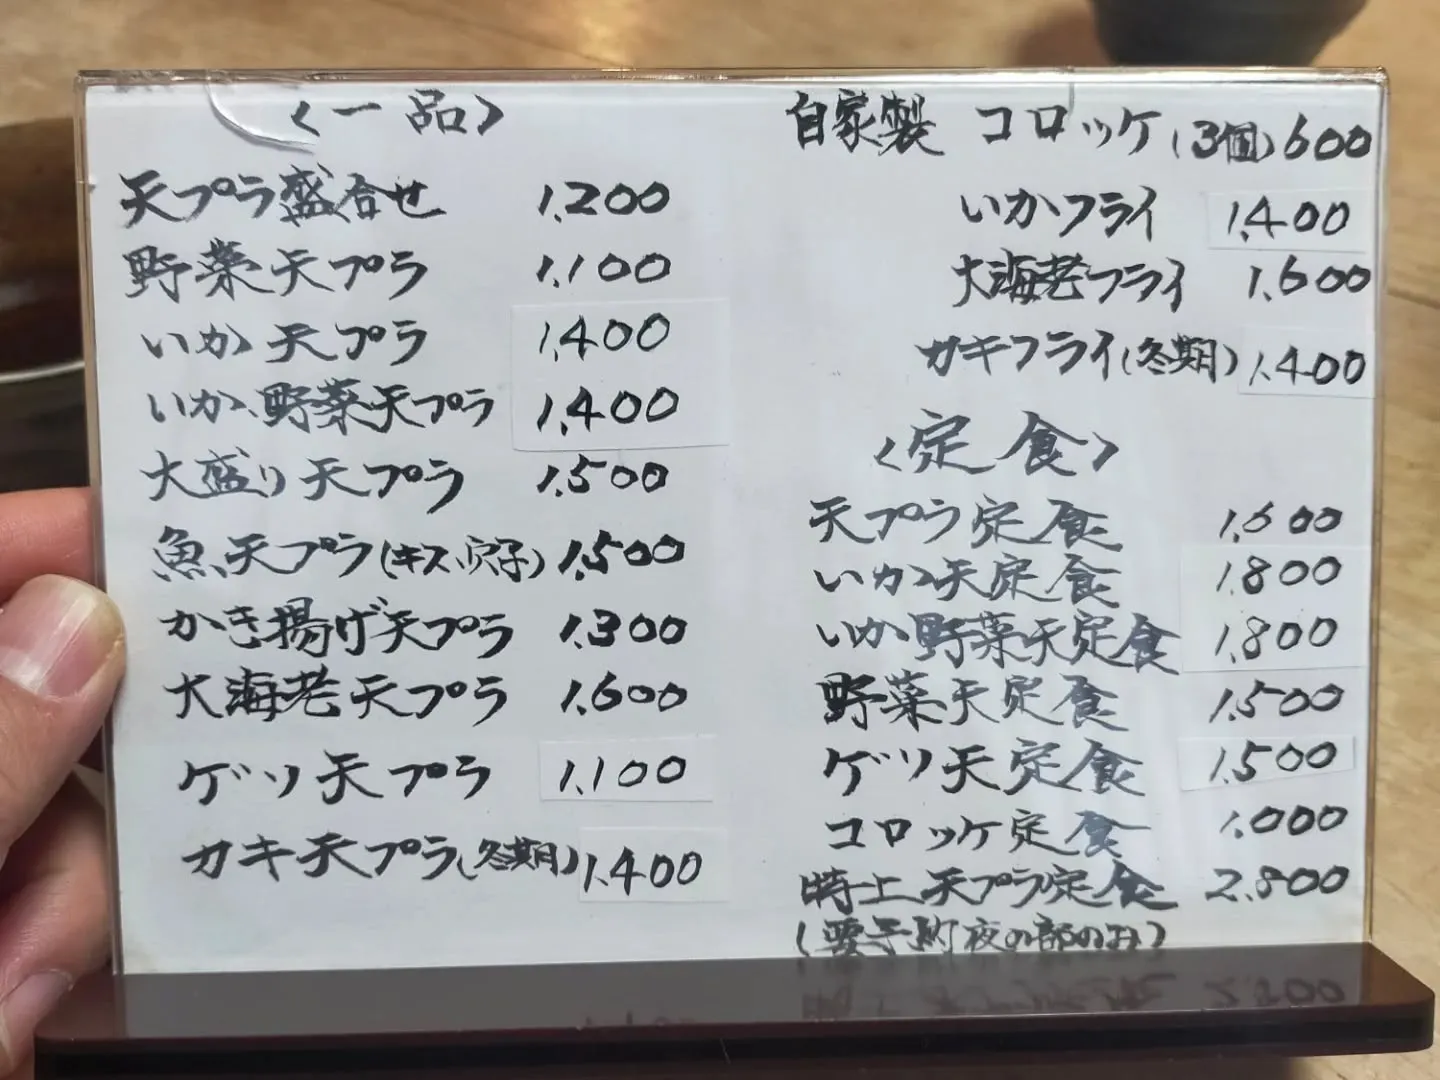 〈一品〉
天プラ盛合せ 1,200
野菜天プラ 1,100
いか天プラ 1,400
いか、野菜天プラ 1,400
大盛り天プラ 1,500
魚天プラ(キス、穴子) 1,500
かき揚げ天プラ 1,300
大海老天プラ 1,600
ゲソ天プラ 1,100
カキ天プラ(冬期) 1,400
自家製 コロッケ(3個) 600
いかフライ 1,400
大海老フライ 1,600
カキフライ(冬期) 1,400
〈定食〉
天プラ定食 1,600
いか天定食 1,800
いか野菜天定食 1,800
野菜天定食 1,500
ゲソ天定食 1,500
コロッケ定食 1,000
特上天プラ定食 2,800
(要予約夜の部のみ)